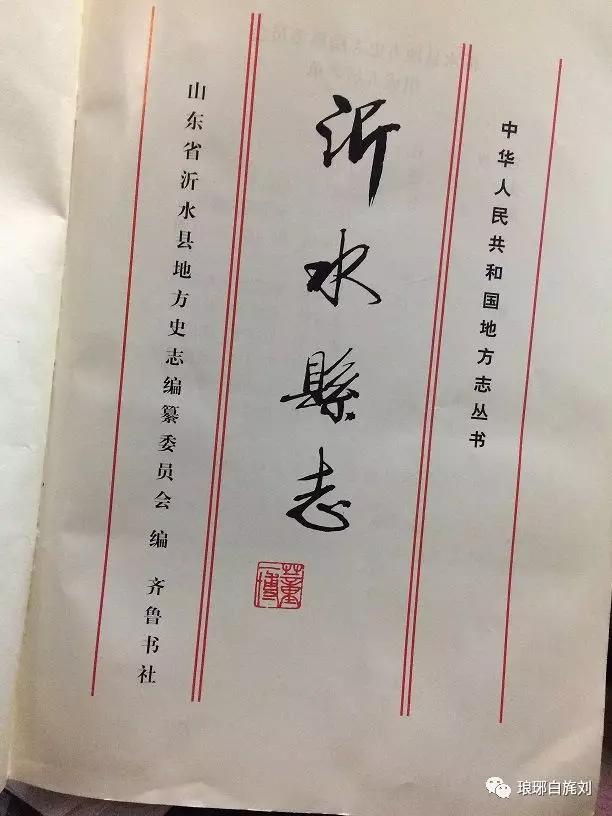 中华人民共和国地方志丛书
沂水縣志
董一博
山东省沂水县地方史志编纂委员会 编 齐鲁书社
琅琊白旄刘